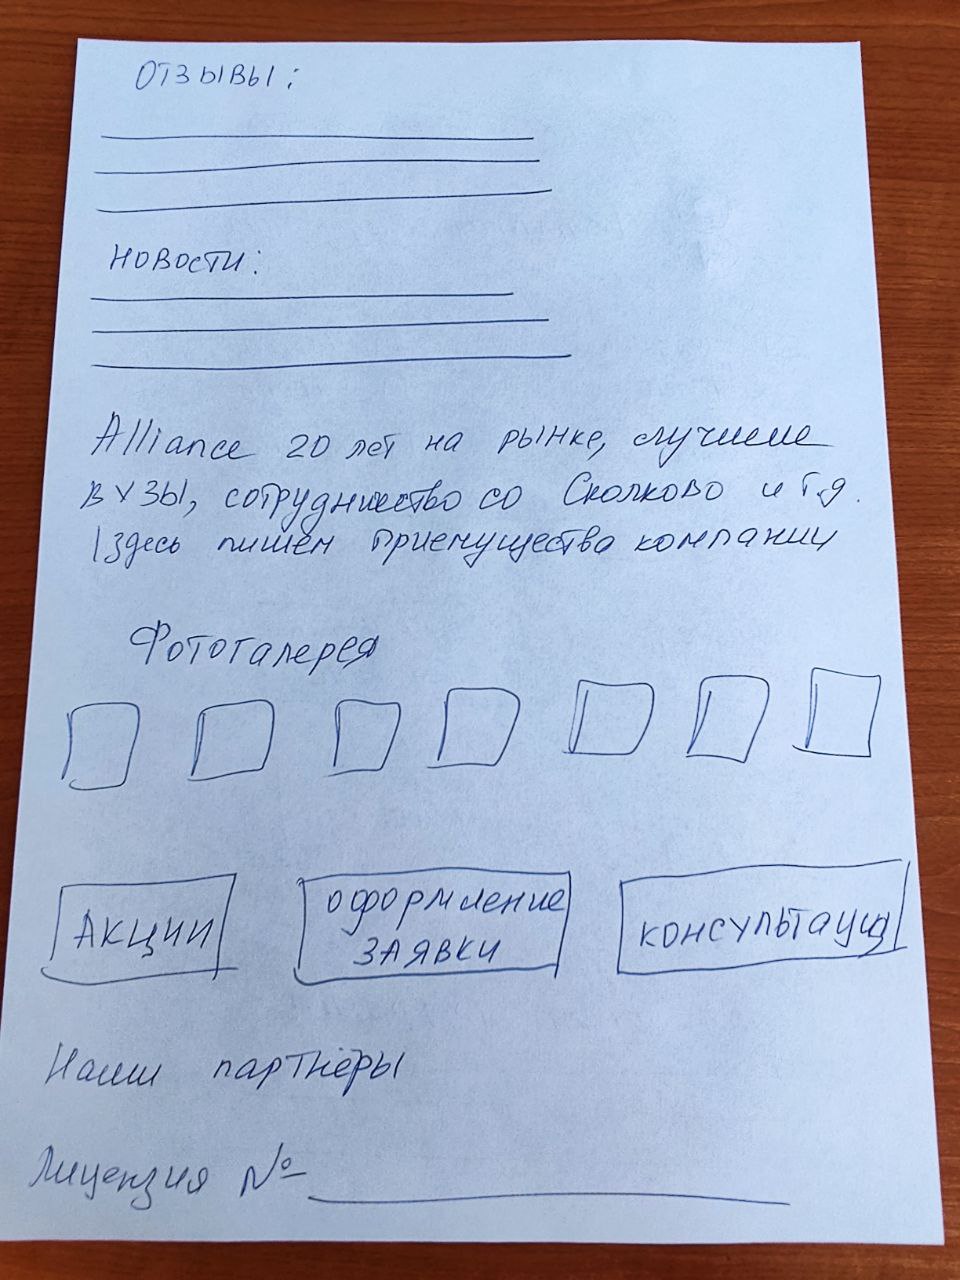 ОТЗЫВЫ:
НОВОСТИ:
Alliance 20 лет на рынке, лучшие
ВУЗЫ, сотрудничество со Сколково и т.д.
(здесь пишем приемущества компании
Фотогалерея
АКЦИИ
оформление
ЗАЯВКИ
КОНСУЛЬТАЦИЯ
Наши партнёры
Лицензия №